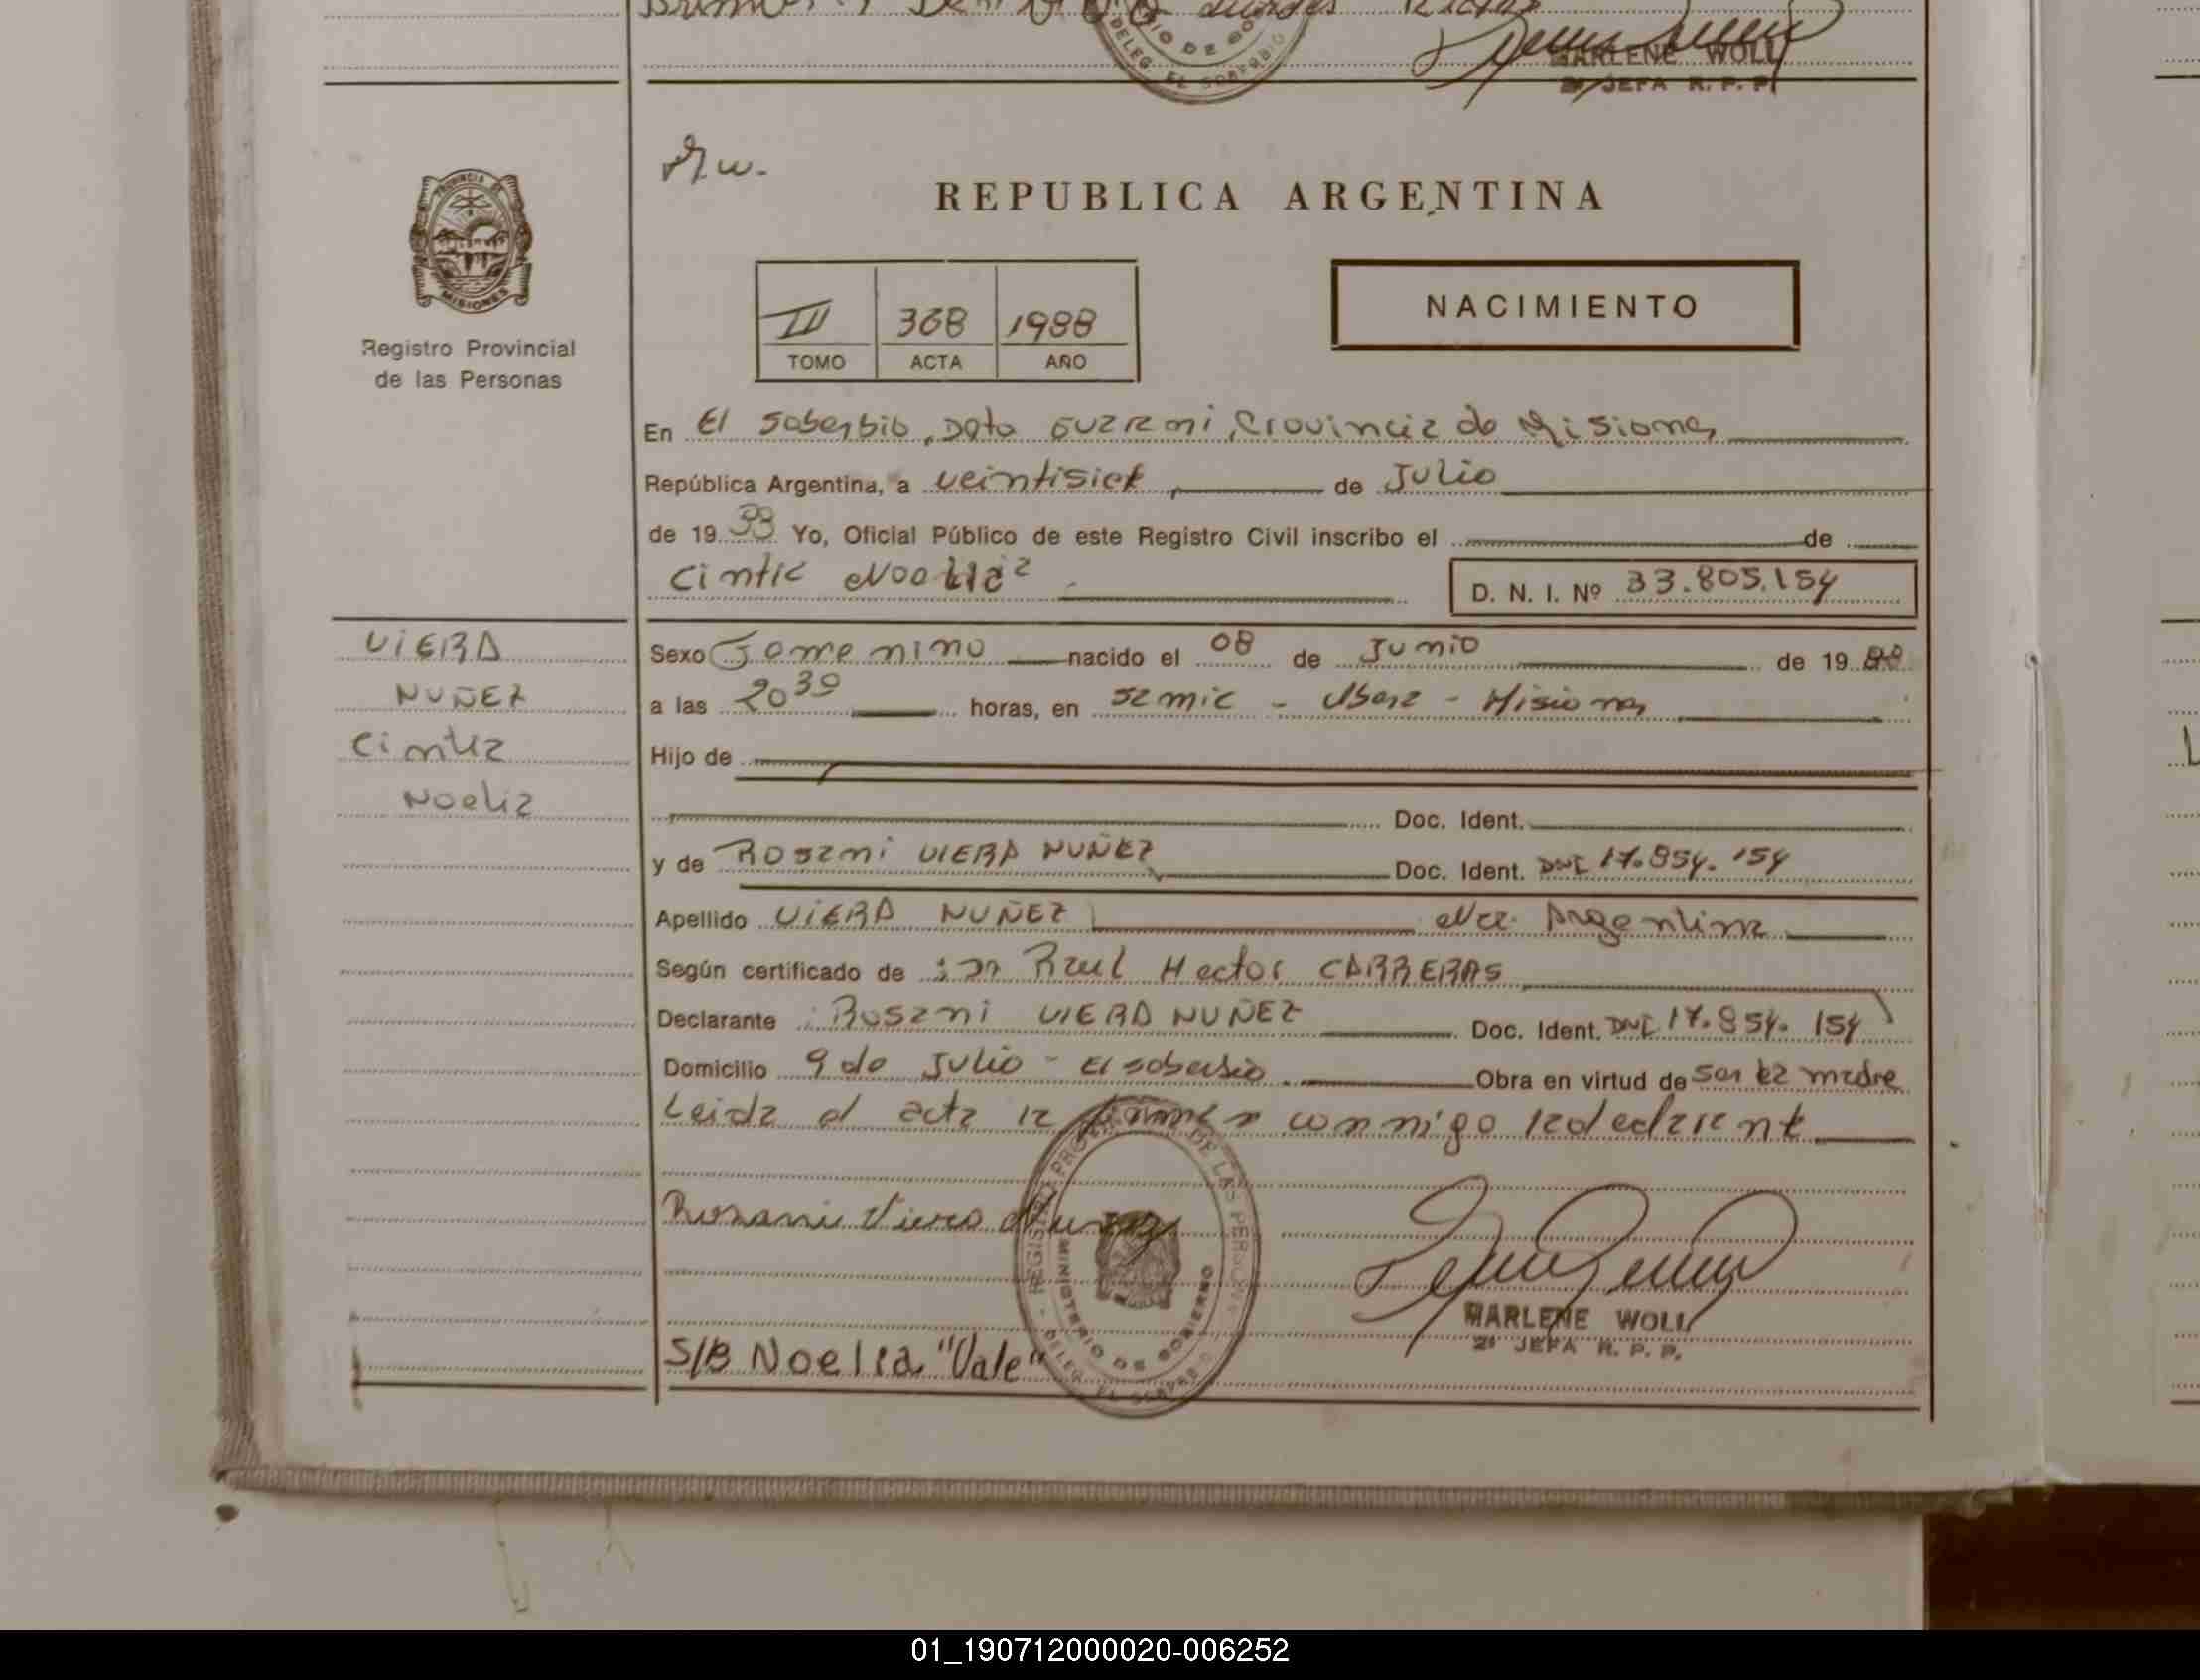 MARLENE WOLL
2º JEFA R. P. P.
DELEG. EL SOBERBIO
PROVINCIA DE
MISIONES
Registro Provincial
de las Personas
REPUBLICA ARGENTINA
III 368 1988
TOMO ACTA AÑO
NACIMIENTO
En El Soberbio, Dpto Guarani, Provincia de Misiones
República Argentina, a veintisiete de Julio
de 19 88 Yo, Oficial Público de este Registro Civil inscribo el de
Cintia Noelia D. N. I. Nº 33.805.154
VIERA
NUÑEZ
Cintia
Noelia
Sexo Femenino nacido el 08 de Junio de 19 88
a las 20 39 horas, en Samic - Obera - Misiones
Hijo de
Doc. Ident.
y de Rosani VIERA NUÑEZ Doc. Ident. DNI 17.854.154
Apellido VIERA NUÑEZ Nac. Argentina
Según certificado de : Dr Raul Hector CARRERAS
Declarante : Rosani VIERA NUÑEZ Doc. Ident. DNI 17.854.154
Domicilio 9 de Julio - El Soberbio Obra en virtud de ser la madre
Leida el acta la firma conmigo la declarante
Rosani Viera Nunez
REGISTRO PROVINCIAL DE LAS PERSONAS
MINISTERIO DE GOBIERNO
DELEG. EL SOBERBIO
MARLENE WOLL
2º JEFA R. P. P.
S/B Noelia "Vale"
01_190712000020-006252